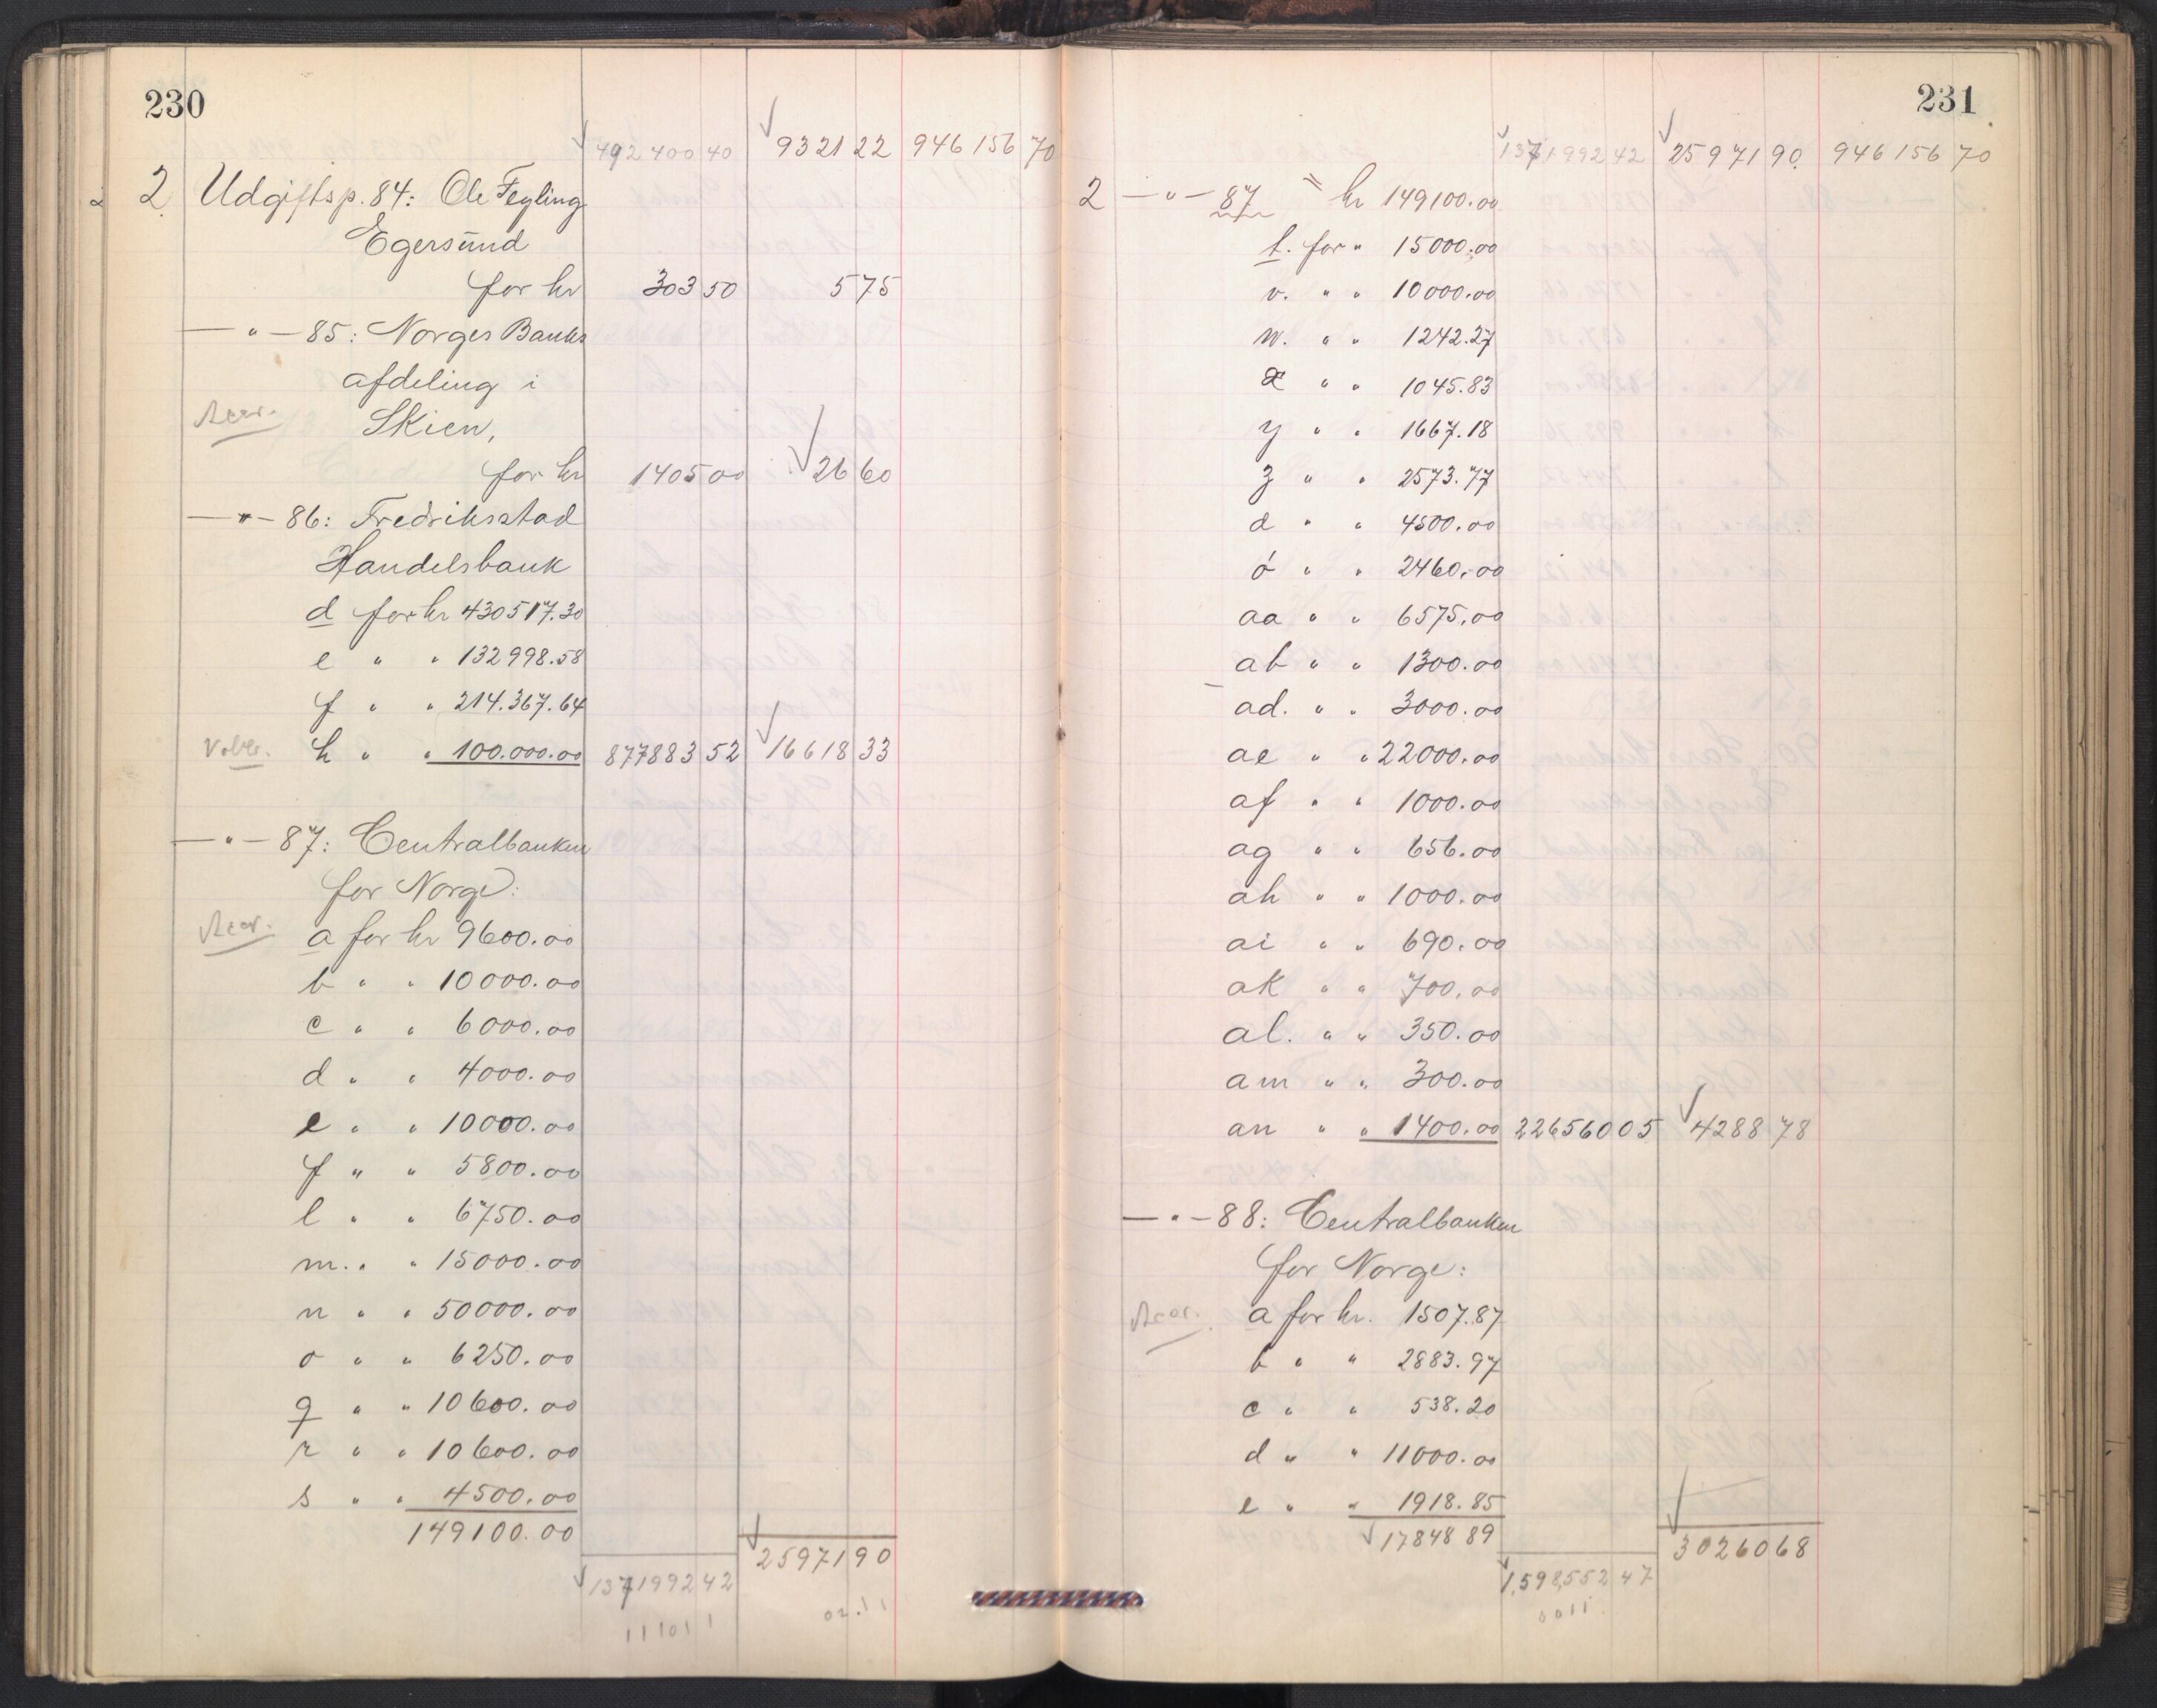 230
492400 40 9321 22 946156 70
2 2 Udgiftsp. 84: Ole Feyling
Egersund
for kr 303 50 5 75
— " — 85: Norges Banks
afdeling i
Skien,
for kr 1405 00 26 60
— " — 86: Fredriksstad
Handelsbank
d for kr 430517.30
e " " 132998.58
f " " 214.367.64
h " " 100.000.00 877883 52 16618 33
— " — 87: Centralbanken
for Norge:
a for kr 9600.00
b " " 10000.00
c " " 6000.00
d " " 4000.00
e " " 10000.00
f " " 5800.00
l " " 6750.00
m. " " 15000.00
n " " 50000.00
o " " 6250.00
q " " 10600.00
r " " 10600.00
s " " 4500.00
149100.00
25971 90
1371992 42
02.11
111011
231
1371992 42 25971 90 946156 70
2 — " — 87 kr 149100.00
t. for " 15000.00
v. " " 10000.00
w. " " 1242.27
x " " 1045.83
y " " 1667.18
z " " 2573.77
d " " 4500.00
ó " " 2460.00
aa " " 6575.00
ab " " 1300.00
ad. " " 3000.00
ae " " 22000.00
af " " 1000.00
ag " " 656.00
ah " " 1000.00
ai " " 690.00
ak " " 700.00
al. " " 350.00
am " " 300.00
an " " 1400.00 226560 05 4288 78
— " — 88: Centralbanken
for Norge:
a for kr. 1507.87
b " " 2883.97
c " " 538.20
d " " 11000.00
e " " 1918.85
17848 89 30260 68
1,598,552 47
0011